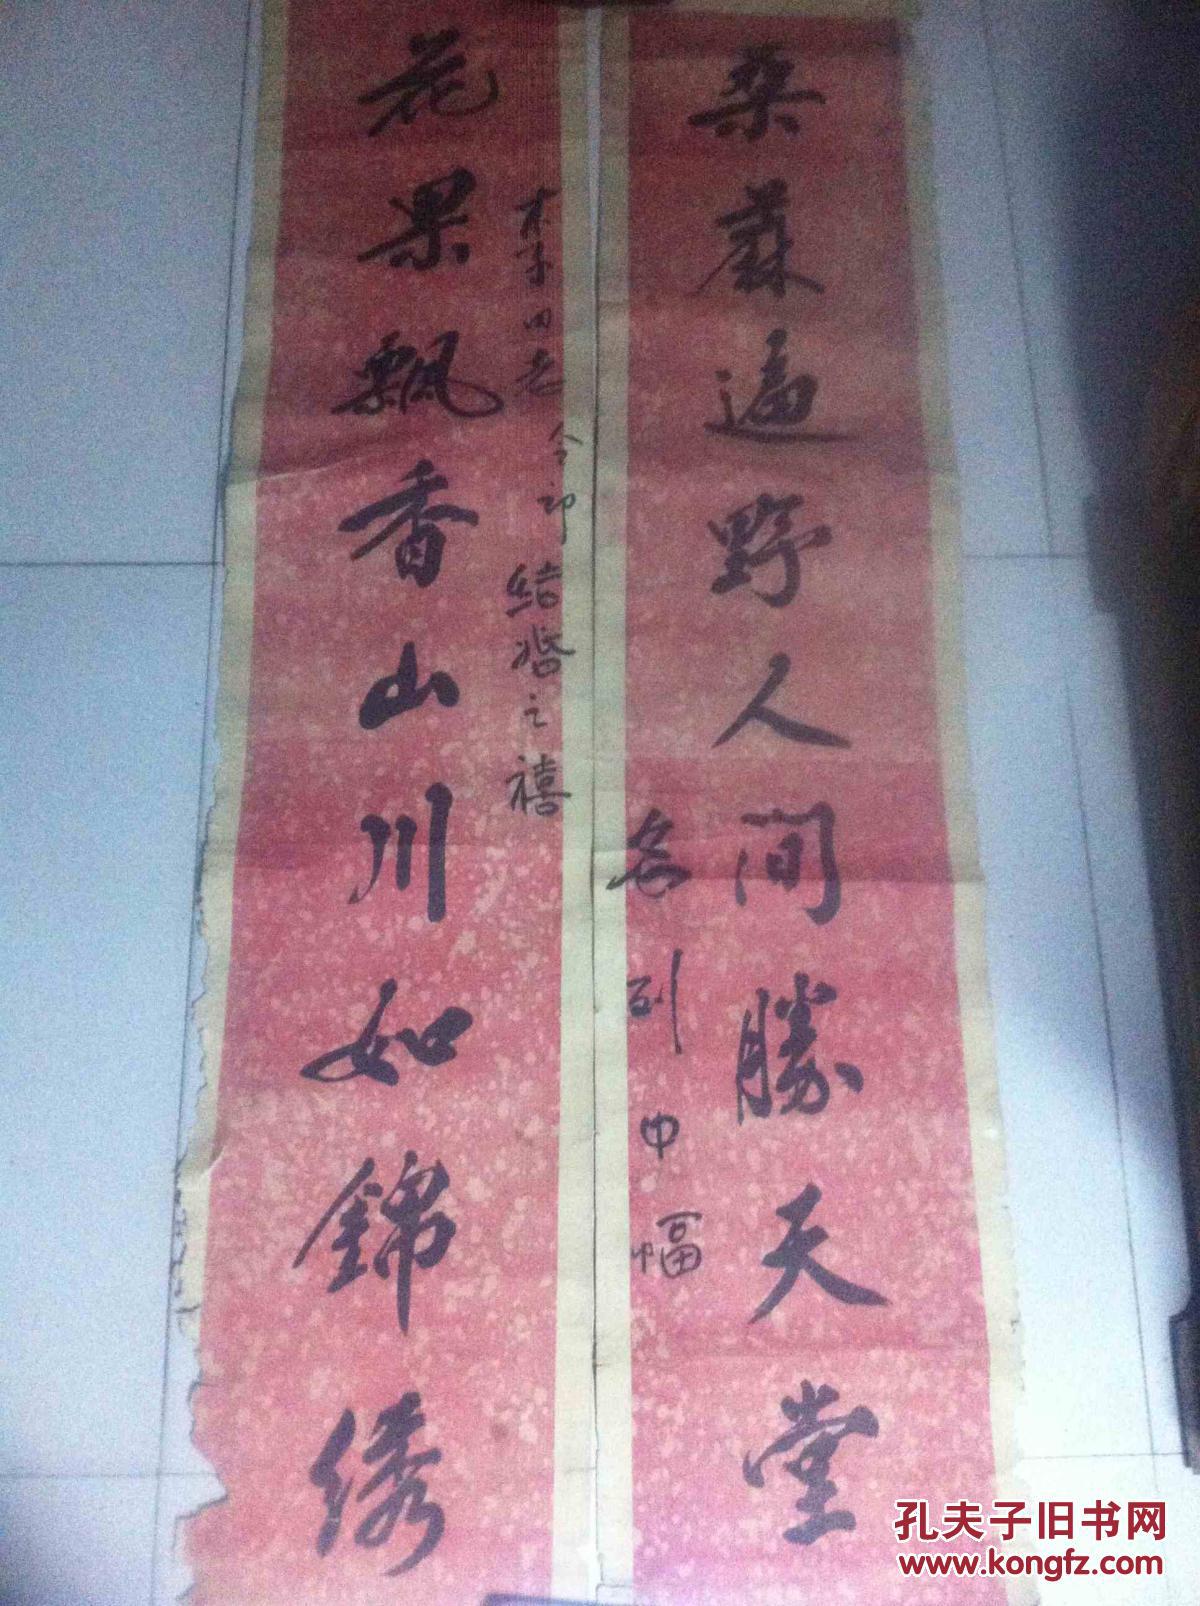 桑麻遍野人间勝天堂
花果飄香山川如錦绣
令郎
结婚之禧
名列中幅
孔夫子旧书网
www.kongfz.com